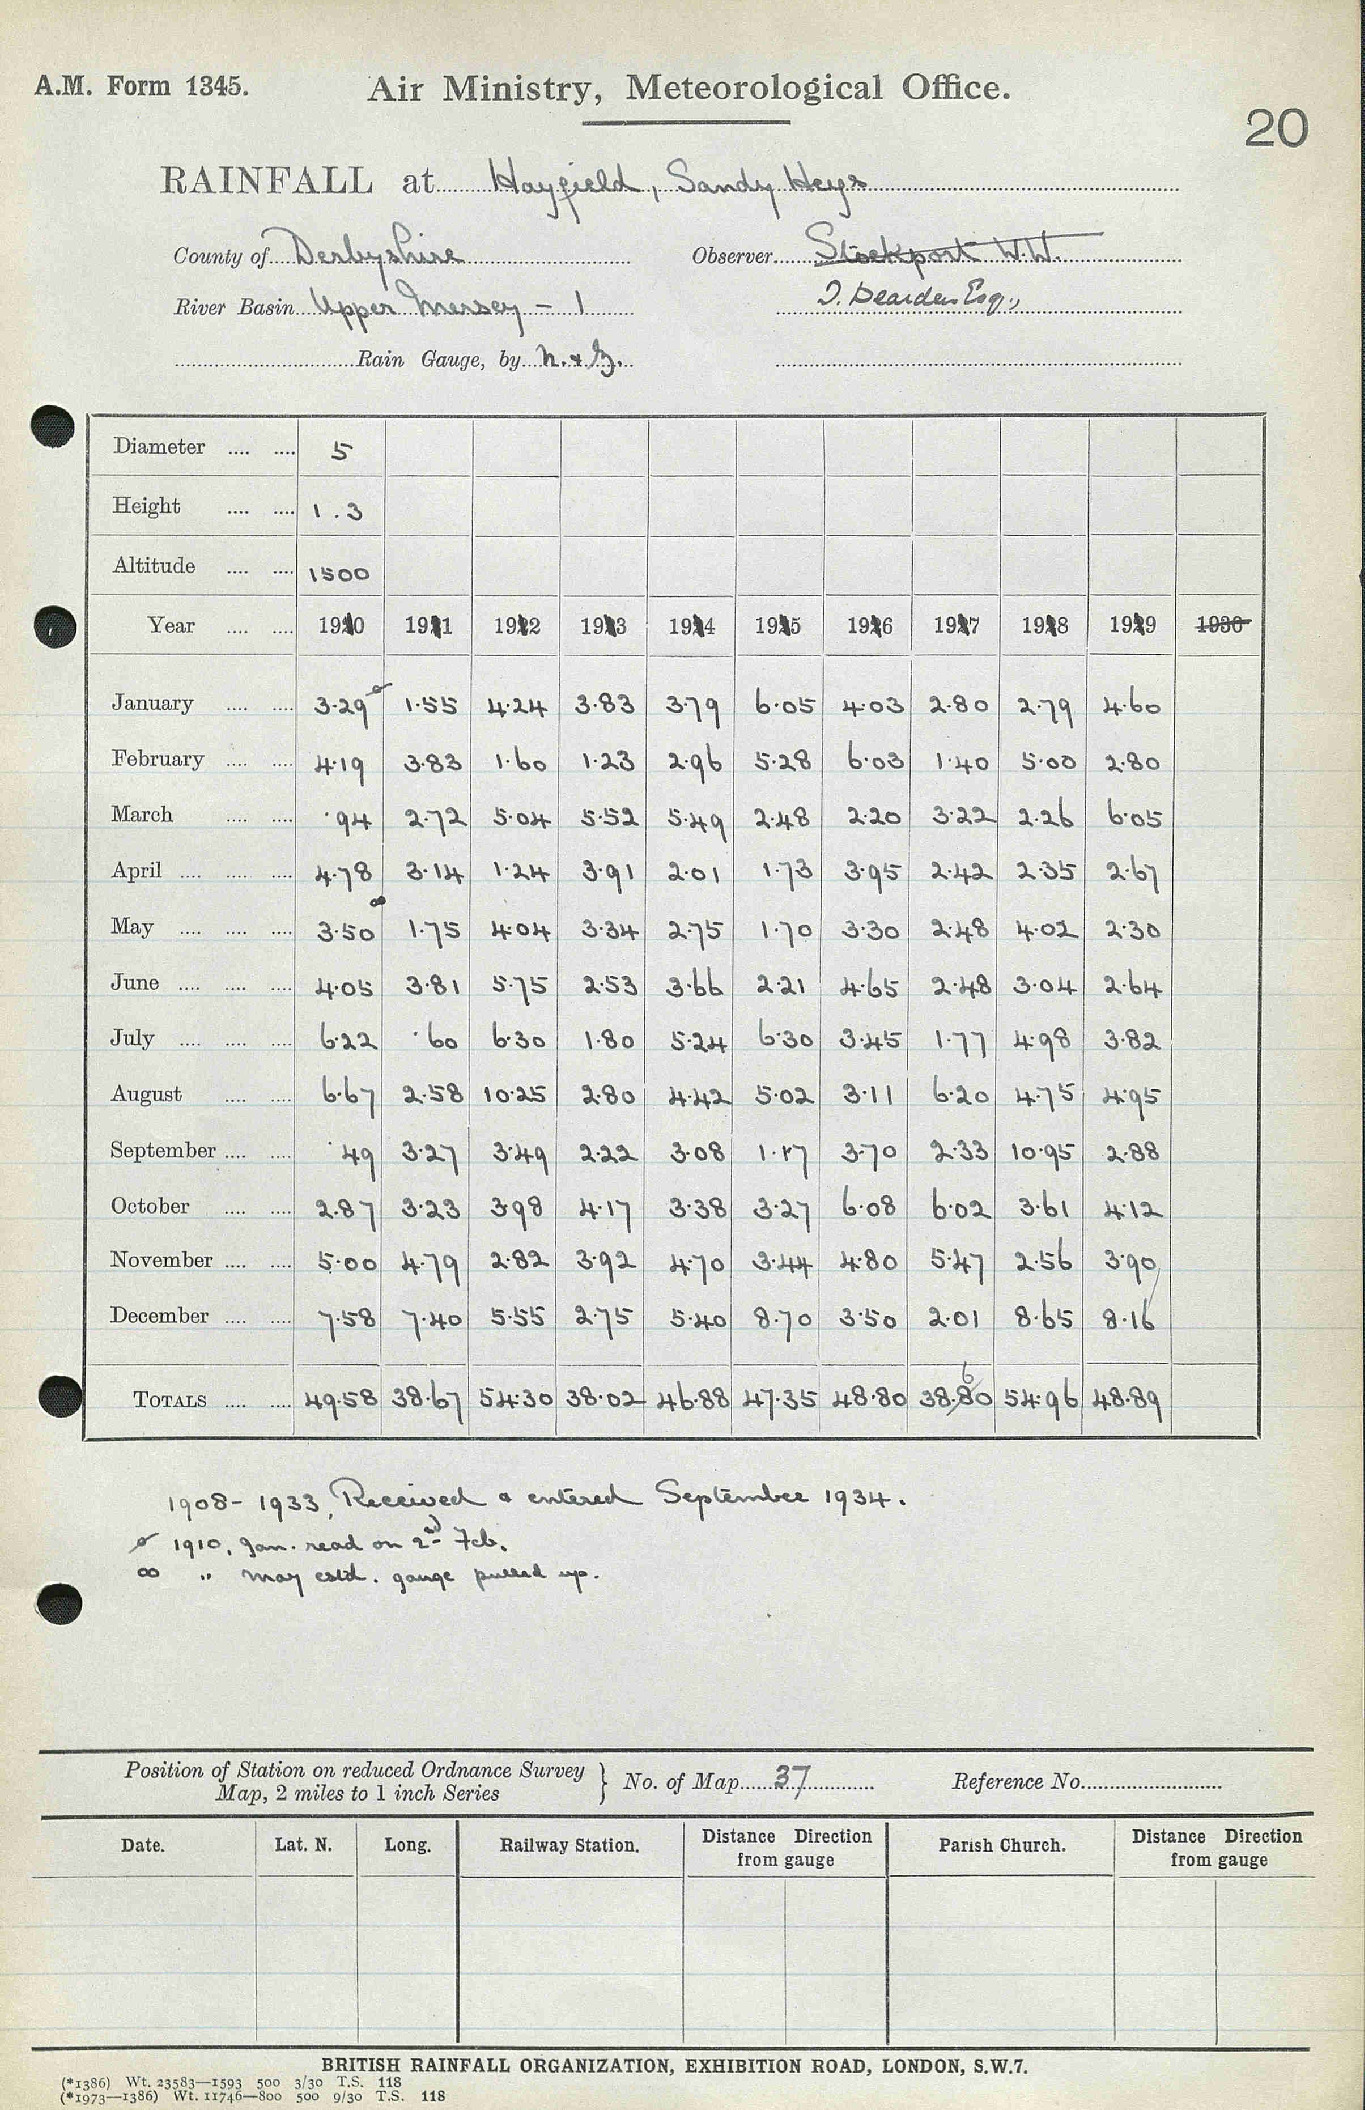 A.M. Form 1345. Air Ministry, Meteorological Office.
20
RAINFALL at Hayfield, Sandy Heys
County of Derbyshire Observer Stockport W.W.
River Basin Upper Mersey - 1 J. Dearden Esq.,
Rain Gauge, by N. & Z.
Diameter .... .... 5
Height .... .... 1.3
Altitude .... .... 1500
Year .... .... 1910 1911 1912 1913 1914 1915 1916 1917 1918 1919 1930
January .... .... 3.29 ø 1.55 4.24 3.83 3.79 6.05 4.03 2.80 2.79 4.60
February .... .... 4.19 3.83 1.60 1.23 2.96 5.28 6.03 1.40 5.00 2.80
March .... .... .94 2.72 5.04 5.52 5.49 2.48 2.20 3.22 2.26 6.05
April .... .... .... 4.78 3.14 1.24 3.91 2.01 1.73 3.95 2.42 2.35 2.67
May .... .... .... 3.50 ∞ 1.75 4.04 3.34 2.75 1.70 3.30 2.48 4.02 2.30
June .... .... .... 4.05 3.81 5.75 2.53 3.66 2.21 4.65 2.48 3.04 2.64
July .... .... .... 6.22 .60 6.30 1.80 5.24 6.30 3.45 1.77 4.98 3.82
August .... .... 6.67 2.58 10.25 2.80 4.42 5.02 3.11 6.20 4.75 4.95
September .... .... .49 3.27 3.49 2.22 3.08 1.17 3.70 2.33 10.95 2.88
October .... .... 2.87 3.23 3.98 4.17 3.38 3.27 6.08 6.02 3.61 4.12
November .... .... 5.00 4.79 2.82 3.92 4.70 3.44 4.80 5.47 2.56 3.90
December .... .... 7.58 7.40 5.55 2.75 5.40 8.70 3.50 2.01 8.65 8.16
6
TOTALS .... .... 49.58 38.67 54.30 38.02 46.88 47.35 48.80 38.80 54.96 48.89
1908 - 1933, Received & entered September 1934.
ø 1910, Jan. read on 2nd Feb.
∞ " May estd. gauge pulled up.
Position of Station on reduced Ordnance Survey
Map, 2 miles to 1 inch Series } No. of Map 37 Reference No.
Date. Lat. N. Long. Railway Station. Distance Direction from gauge Parish Church. Distance Direction from gauge
BRITISH RAINFALL ORGANIZATION, EXHIBITION ROAD, LONDON, S.W.7.
(*1386) Wt. 23583—1593 500 3/30 T.S. 118
(*1973—1386) Wt. 11746—800 500 9/30 T.S. 118